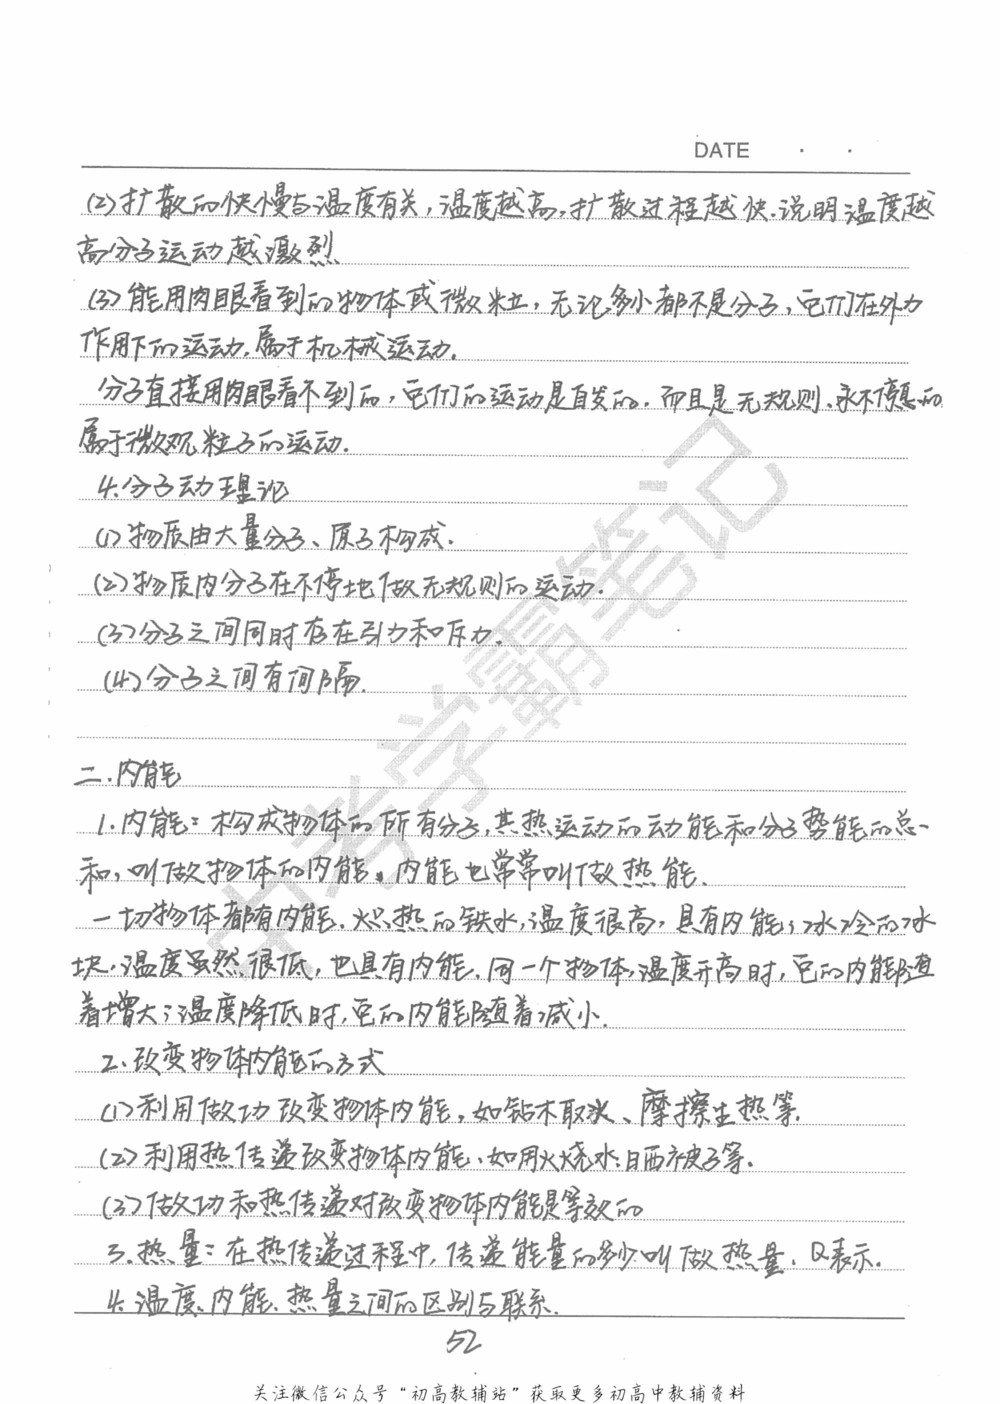 DATE · ·
(2)扩散的快慢与温度有关,温度越高,扩散过程越快.说明温度越
高分子运动越激烈.
(3)能用肉眼看到的物体或微粒,无论多小都不是分子,它们在外力
作用下的运动.属于机械运动.
分子直接用肉眼看不到的,它们的运动是自发的.而且是无规则、永不停息的
属于微观粒子的运动.
4.分子动理论
(1)物质由大量分子、原子构成.
(2)物质内分子在不停地做无规则的运动.
(3)分子之间同时存在引力和斥力.
(4)分子之间有间隔.
二.内能
1.内能:构成物体的所有分子,其热运动的动能和分子势能的总
和,叫做物体的内能。内能也常常叫做热能.
一切物体都有内能.炽热的铁水,温度很高,具有内能;冰冷的冰
块.温度虽然很低,也具有内能.同一个物体,温度升高时,它的内能随
着增大;温度降低时,它的内能随着减小.
2.改变物体内能的方式
(1)利用做功改变物体内能,如钻木取火、摩擦生热等.
(2)利用热传递改变物体内能、如用火烧水;晒被子等.
(3)做功和热传递对改变物体内能是等效的
3.热量:在热传递过程中,传递能量的多少叫做热量.Q表示.
4.温度、内能、热量之间的区别与联系.
52
中考学霸笔记
关注微信公众号“初高教辅站”获取更多初高中教辅资料